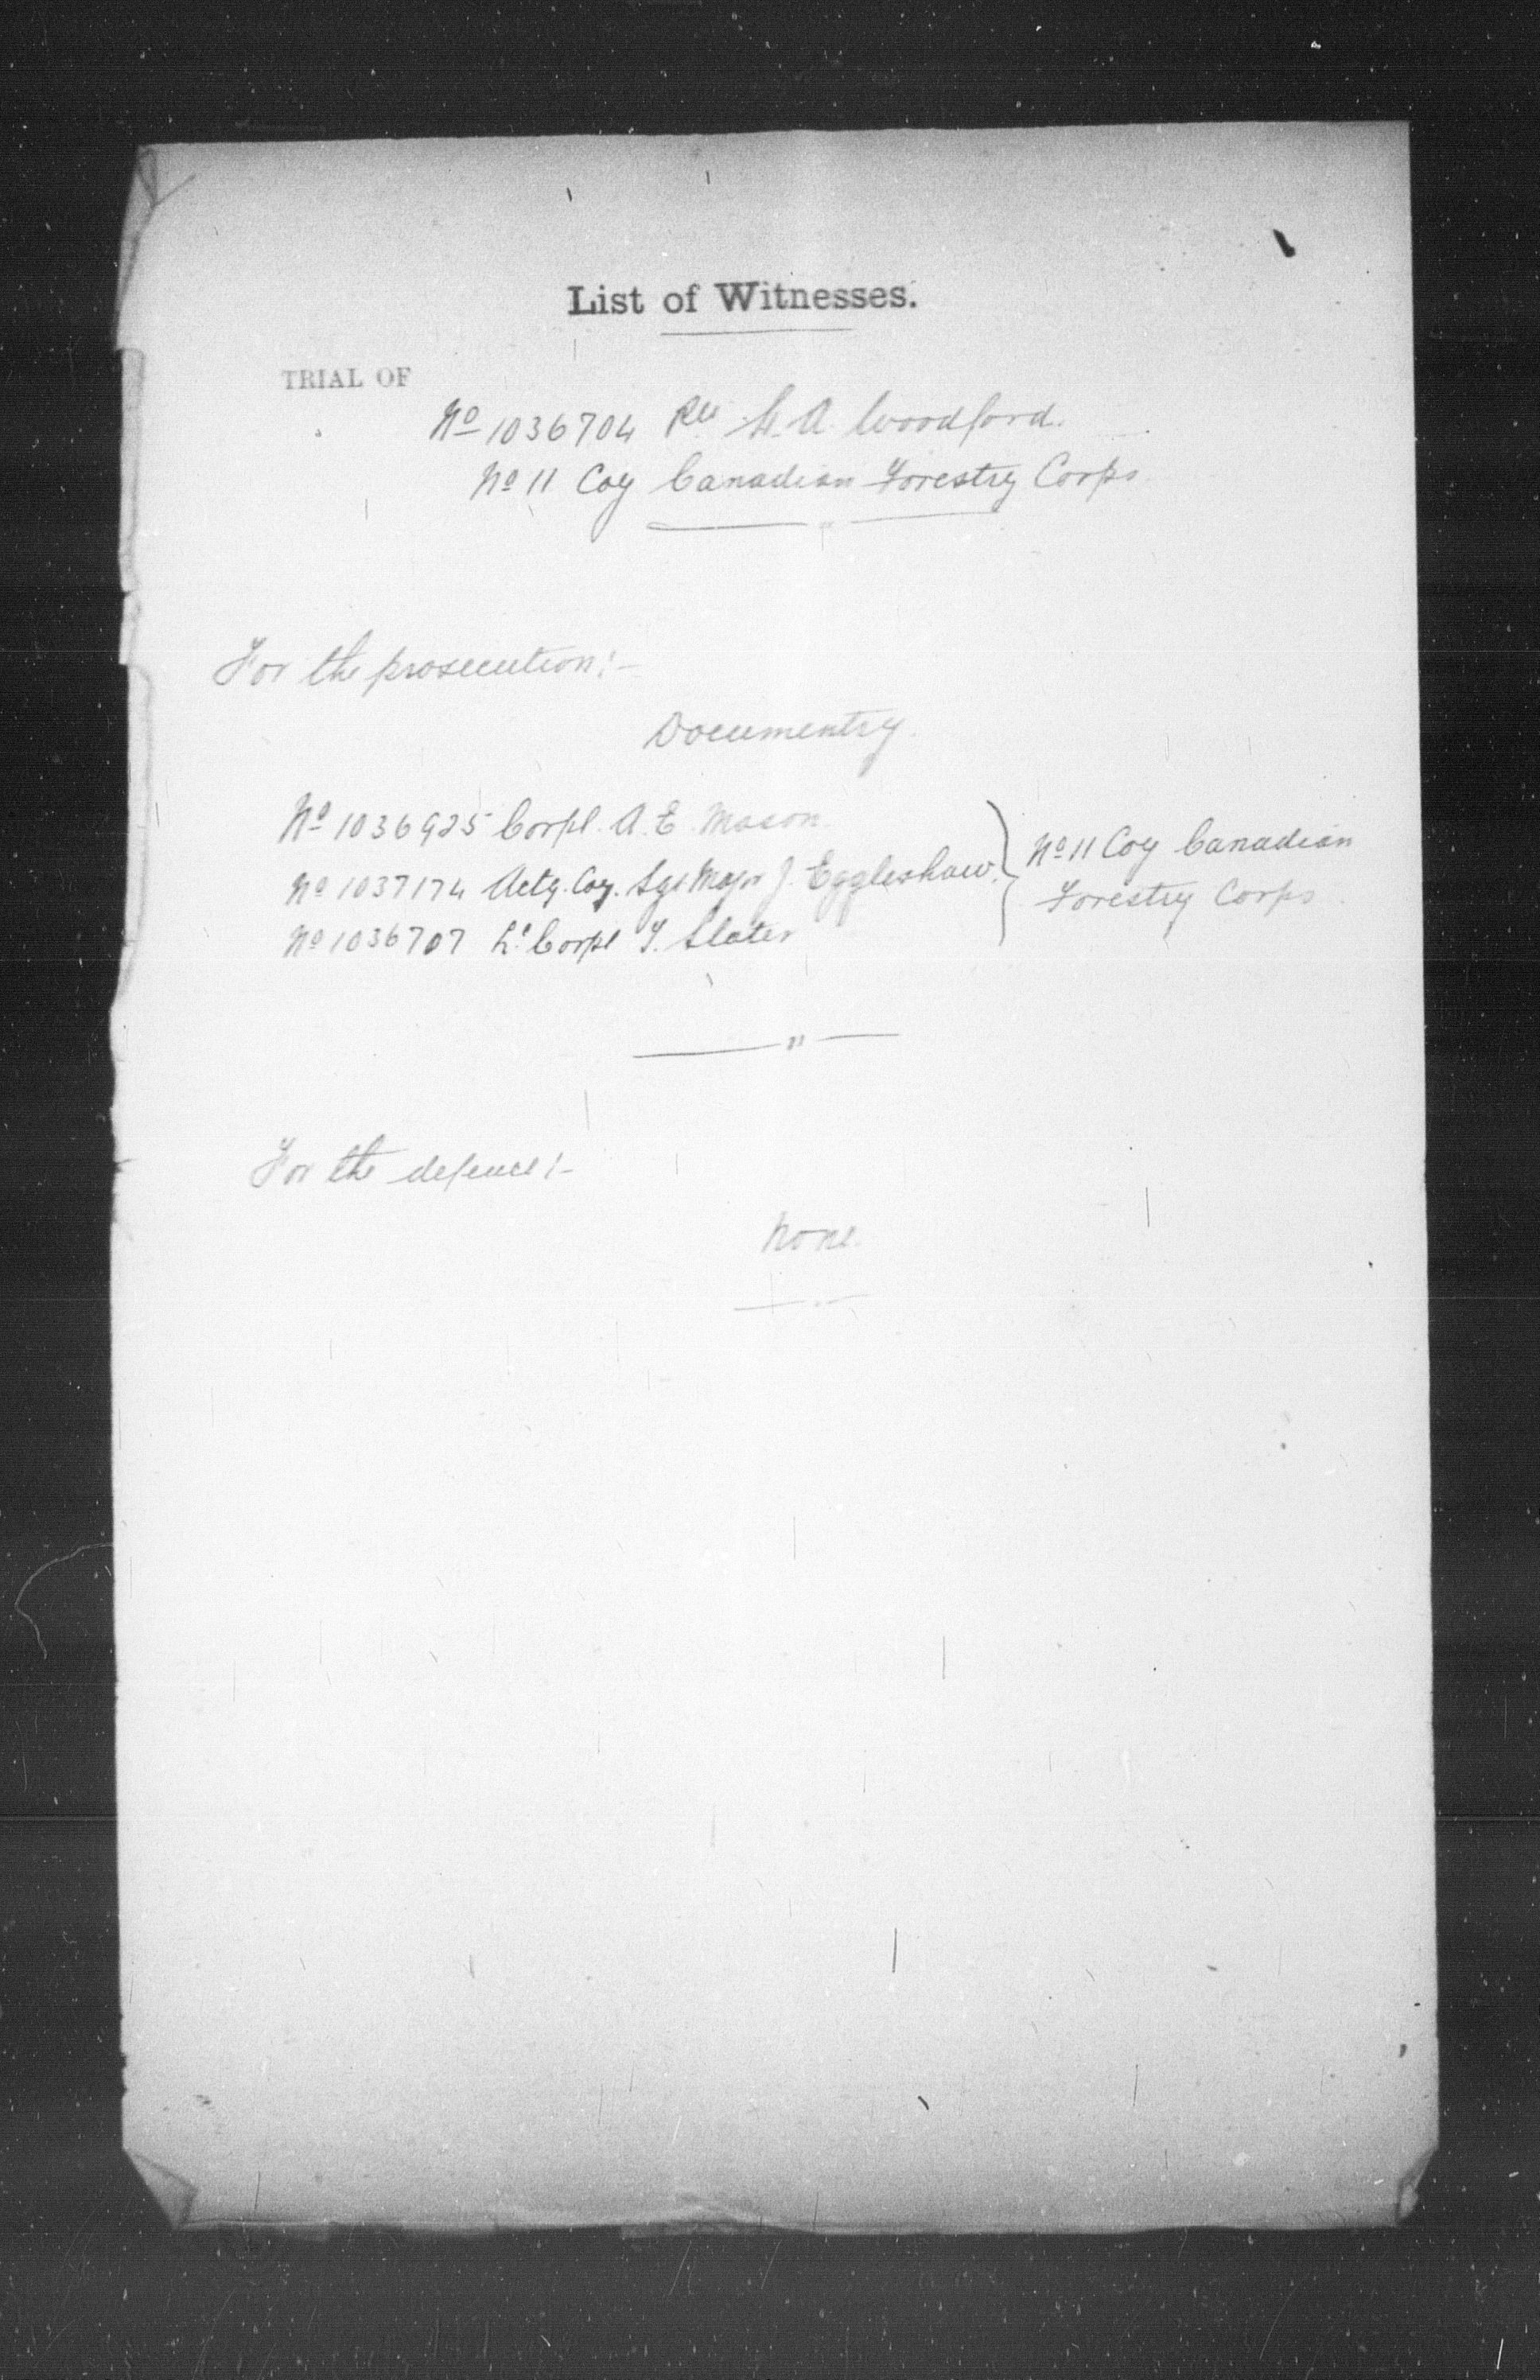 List of Witnesses.
TRIAL OF
No 1036704 Pte H. A. Woodford.
No 11 Coy Canadian Forestry Corps
For the prosecution:-
Documentry.
No 1036925 Corpl. A. E. Mason.
No 1037174 Actg. Coy. Sgt Major J. Eggleshaw.
No 1036707 Lc Corpl T. Slater
No 11 Coy Canadian
Forestry Corps.
For the defence:-
None.